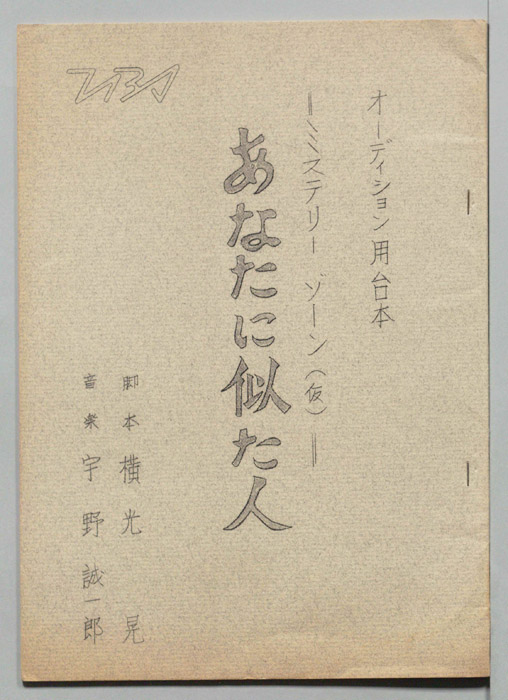 オーディション用台本
＝ミステリー ゾーン（仮）＝
あなたに似た人
脚本 横光 晃
音楽 宇野誠一郎